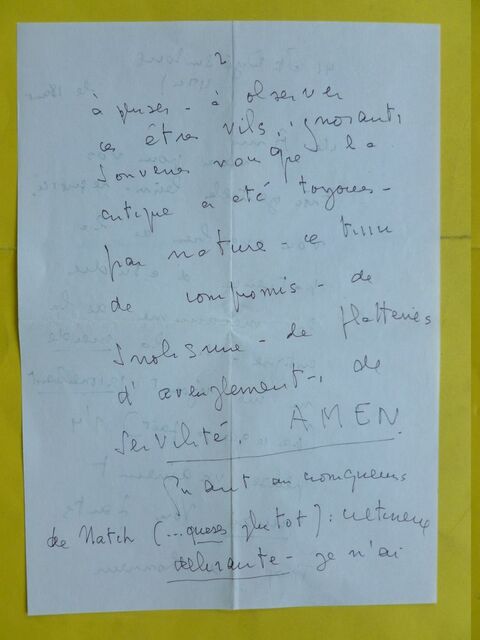 2
à penser - à observer
ces êtres vils, ignorants,
Souvenez vous que la
critique a été toujours -
par nature - ce tissu
de compromis - de
snobisme - de flatteries
d'aveuglement -, de
servilité. AMEN.
Quant au
de Match (... queses plutot) :
délirante - je n'ai